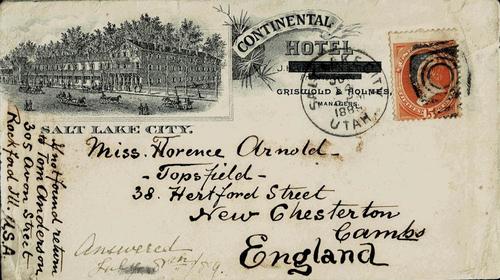 CONTINENTAL
HOTEL
GRISWOLD & HOLMES,
MANAGERS.
SALT LAKE CITY.
UTAH
15
Miss. Florence Arnold -
- Topsfield -
38. Hertford Street
New Chesterton
Cambs
England
If not found return
to Tom Anderson
305 Avon Street
Rockford Ill. U.S.A
Answered